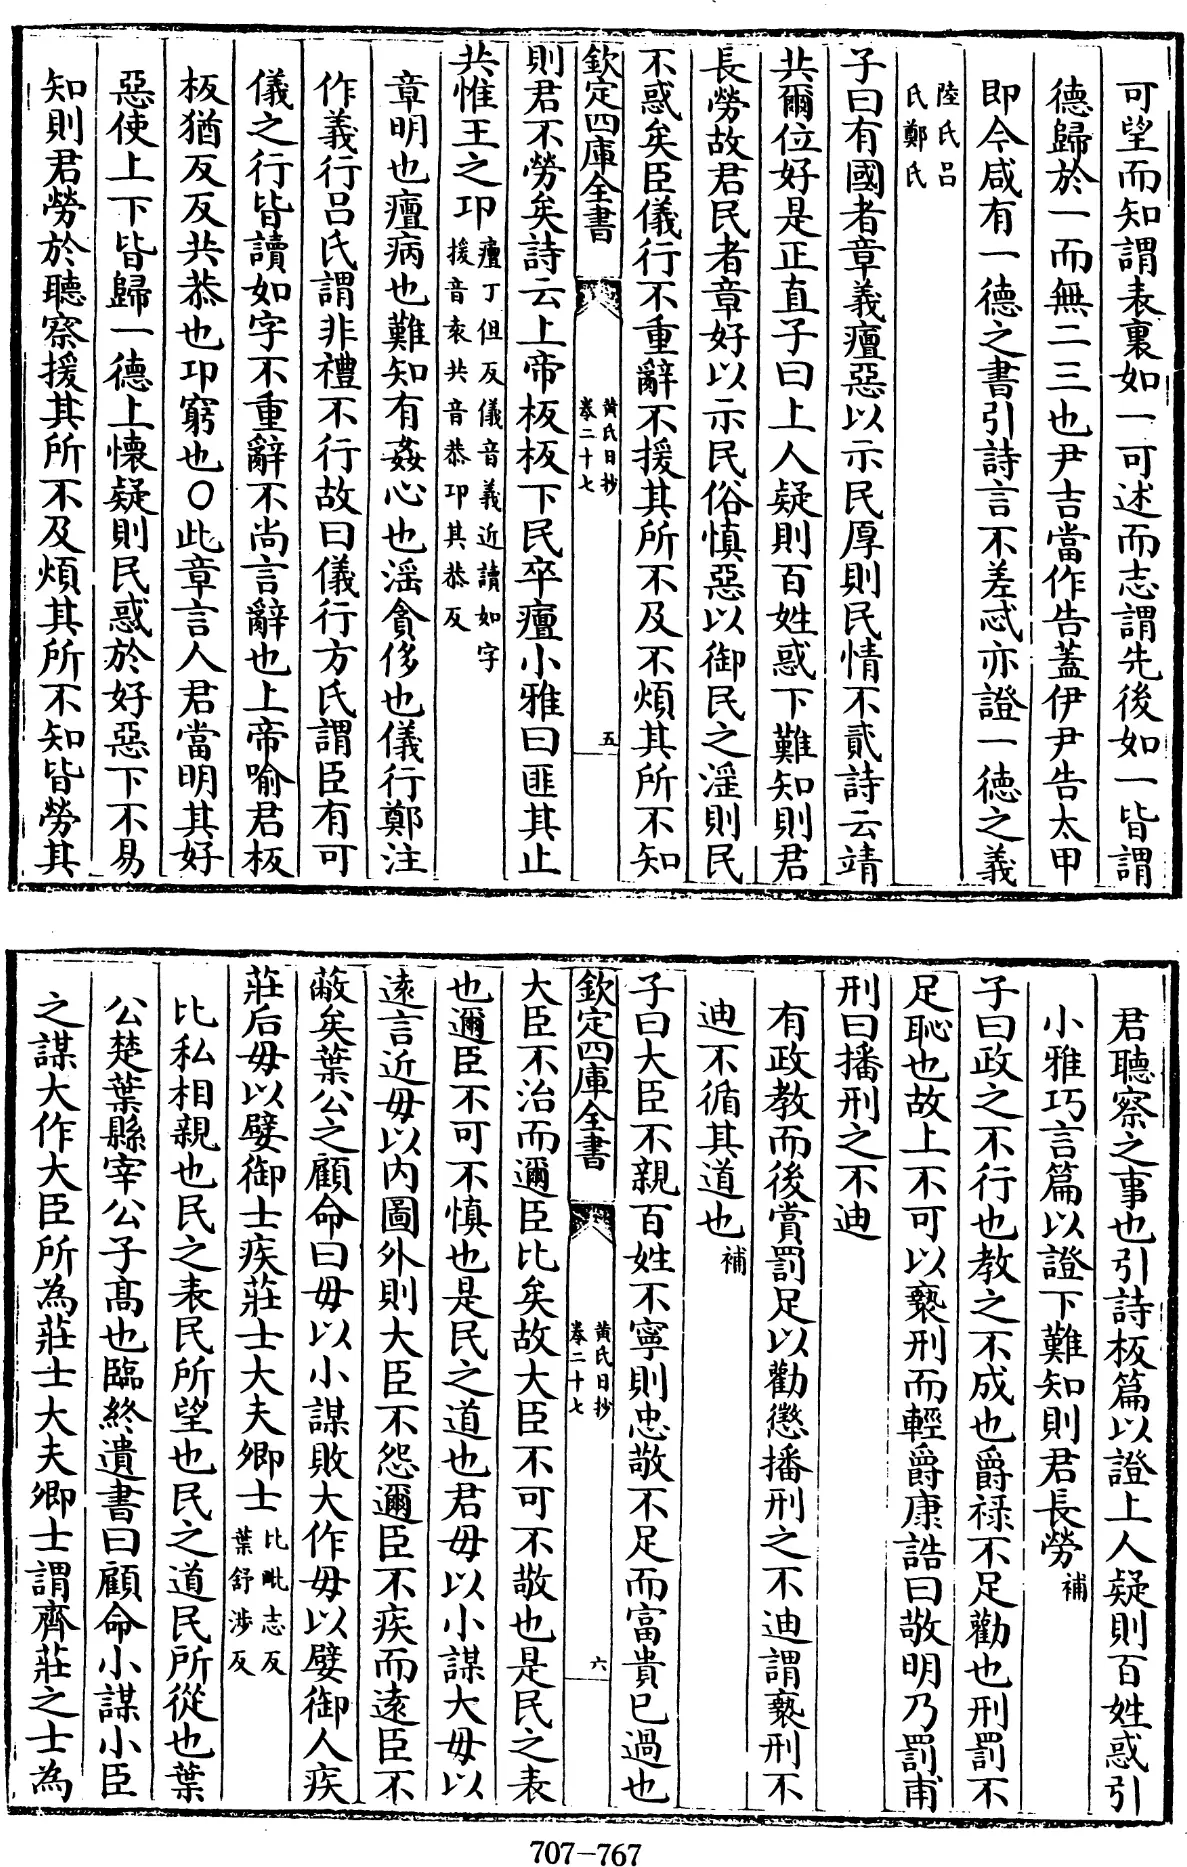 可望而知謂表裏如一可述而志謂先後如一皆謂
德歸於一而無二三也尹吉當作告蓋伊尹告太甲
即今咸有一德之書引詩言不差忒亦證一德之義
陸氏呂
氏鄭氏
子曰有國者章義癉惡以示民厚則民情不貳詩云靖
共爾位好是正直子曰上人疑則百姓惑下難知則君
長勞故君民者章好以示民俗慎惡以御民之淫則民
不惑矣臣儀行不重辭不援其所不及不煩其所不知
欽定四庫全書
黃氏日抄
卷二十七
五
則君不勞矣詩云上帝板板下民卒癉小雅曰匪其止
共惟王之邛癉丁但反儀音義近讀如字
援音袁共音恭邛其恭反
章明也癉病也難知有姦心也淫貪侈也儀行鄭注
作義行呂氏謂非禮不行故曰儀行方氏謂臣有可
儀之行皆讀如字不重辭不尚言辭也上帝喻君板
板猶反反共恭也邛窮也〇此章言人君當明其好
惡使上下皆歸一德上懷疑則民惑於好惡下不易
知則君勞於聽察援其所不及煩其所不知皆勞其
君聽察之事也引詩板篇以證上人疑則百姓惑引
小雅巧言篇以證下難知則君長勞補
子曰政之不行也教之不成也爵祿不足勸也刑罰不
足恥也故上不可以褻刑而輕爵康誥曰敬明乃罰甫
刑曰播刑之不迪
有政教而後賞罰足以勸懲播刑之不迪謂褻刑不
迪不循其道也補
子曰大臣不親百姓不寧則忠敬不足而富貴已過也
欽定四庫全書
黃氏日抄
卷二十七
六
大臣不治而邇臣比矣故大臣不可不敬也是民之表
也邇臣不可不慎也是民之道也君毋以小謀大毋以
遠言近毋以內圖外則大臣不怨邇臣不疾而遠臣不
蔽矣葉公之顧命曰毋以小謀敗大作毋以嬖御人疾
莊后毋以嬖御士疾莊士大夫卿士比毗志反
葉舒涉反
比私相親也民之表民所望也民之道民所從也葉
公楚葉縣宰公子高也臨終遺書曰顧命小謀小臣
之謀大作大臣所為莊士大夫卿士謂齊莊之士為
707-767